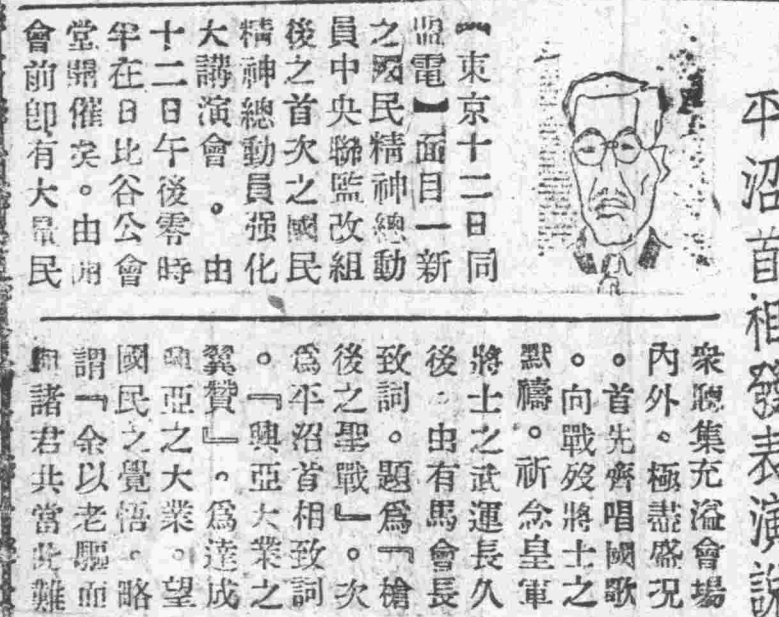 平沼首相發表演說
【東京十二日同
盟電】面目一新
之國民精神總動
員中央聯盟改組
後之首次之國民
精神總動員强化
大講演會。由
十二日午後零時
半在日比谷公會
堂開催矣。由開
會前卽有大量民
衆聽集充溢會場
內外。極盡盛况
。首先齊唱國歌
。向戰歿將士之
默禱。祈念皇軍
將士之武運長久
後。由有馬會長
致詞。題爲『槍
後之聖戰』。次
爲平沼首相致詞
。『興亞大業之
翼贊』。爲達成
興亞之大業。望
國民之覺悟。略
謂『余以老軀而
與諸君共當此難